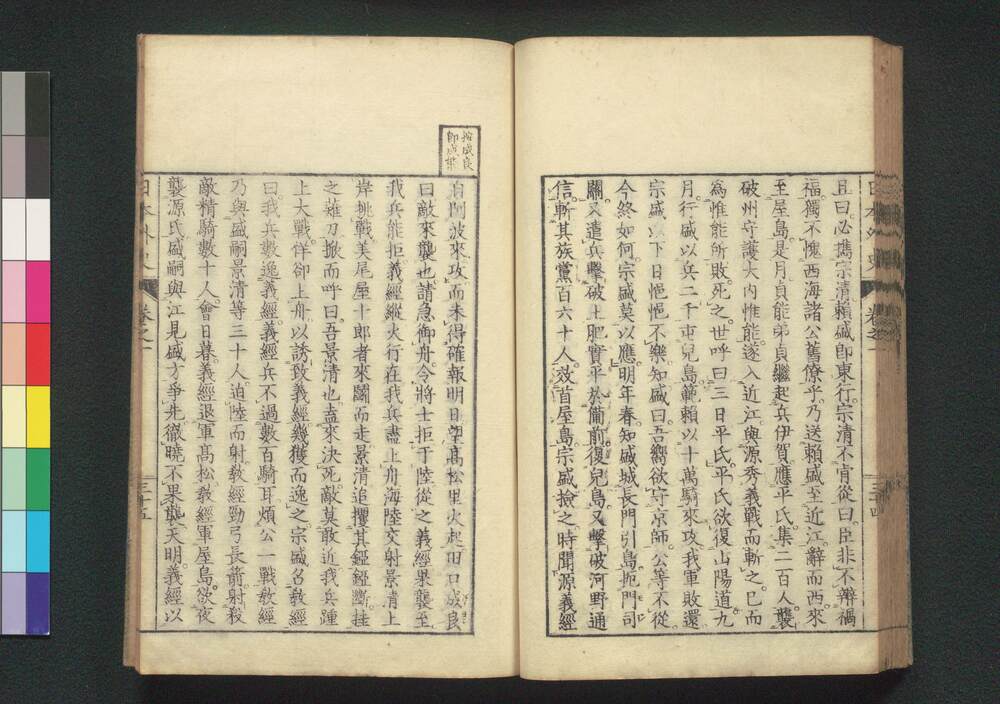 且曰必擕宗清賴盛即東行宗清不肯從曰臣非不辯禍
福獨不愧西海諸公舊僚乎乃送賴盛至近江辭而西來
至屋島是月貞能弟貞繼起兵伊賀應平氏集二百人襲
破州守護大内惟能遂入近江與源秀義戰而斬之已而
為惟能所敗死之世呼曰三日平氏平氏欲復山陽道九
月行盛以兵二千屯兒島範賴以十萬騎來攻我軍敗還
宗盛以下日悒悒不樂知盛曰吾嚮欲守京師公等不從
今終如何宗盛莫以應明年春知盛城長門引島扼門司
關又遣兵擊破土肥實平於備前復兒島又擊破河野通
信斬其族黨百六十人效首屋島宗盛撿之時聞源義經
日本外史 卷之一 三十四
自阿波來攻而未得確報明日望高松里火起田口成良
曰敵來襲也請急御舟令將士拒于陸從之義經果襲至
我兵能拒義經縱火行在我兵盡上舟海陸交射景清上
岸挑戰美尾屋十郎者來鬭而走景清追攫其錏錏斷挂
之薙刀掀而呼曰吾景清也盍來決死敵莫敢近我兵踵
上大戰佯卻上舟以誘致義經幾獲而逸之宗盛召敎經
曰我兵數逸義經義經兵不過數百騎耳煩公一戰敎經
乃與盛嗣景清等三十人迫陸而射敎經勁弓長箭射殺
敵精騎數十人會日暮義經退軍高松敎經軍屋島欲夜
襲源氏盛嗣與江見盛方爭先徹曉不果襲天明義經以
日本外史 卷之一 三十五
成良